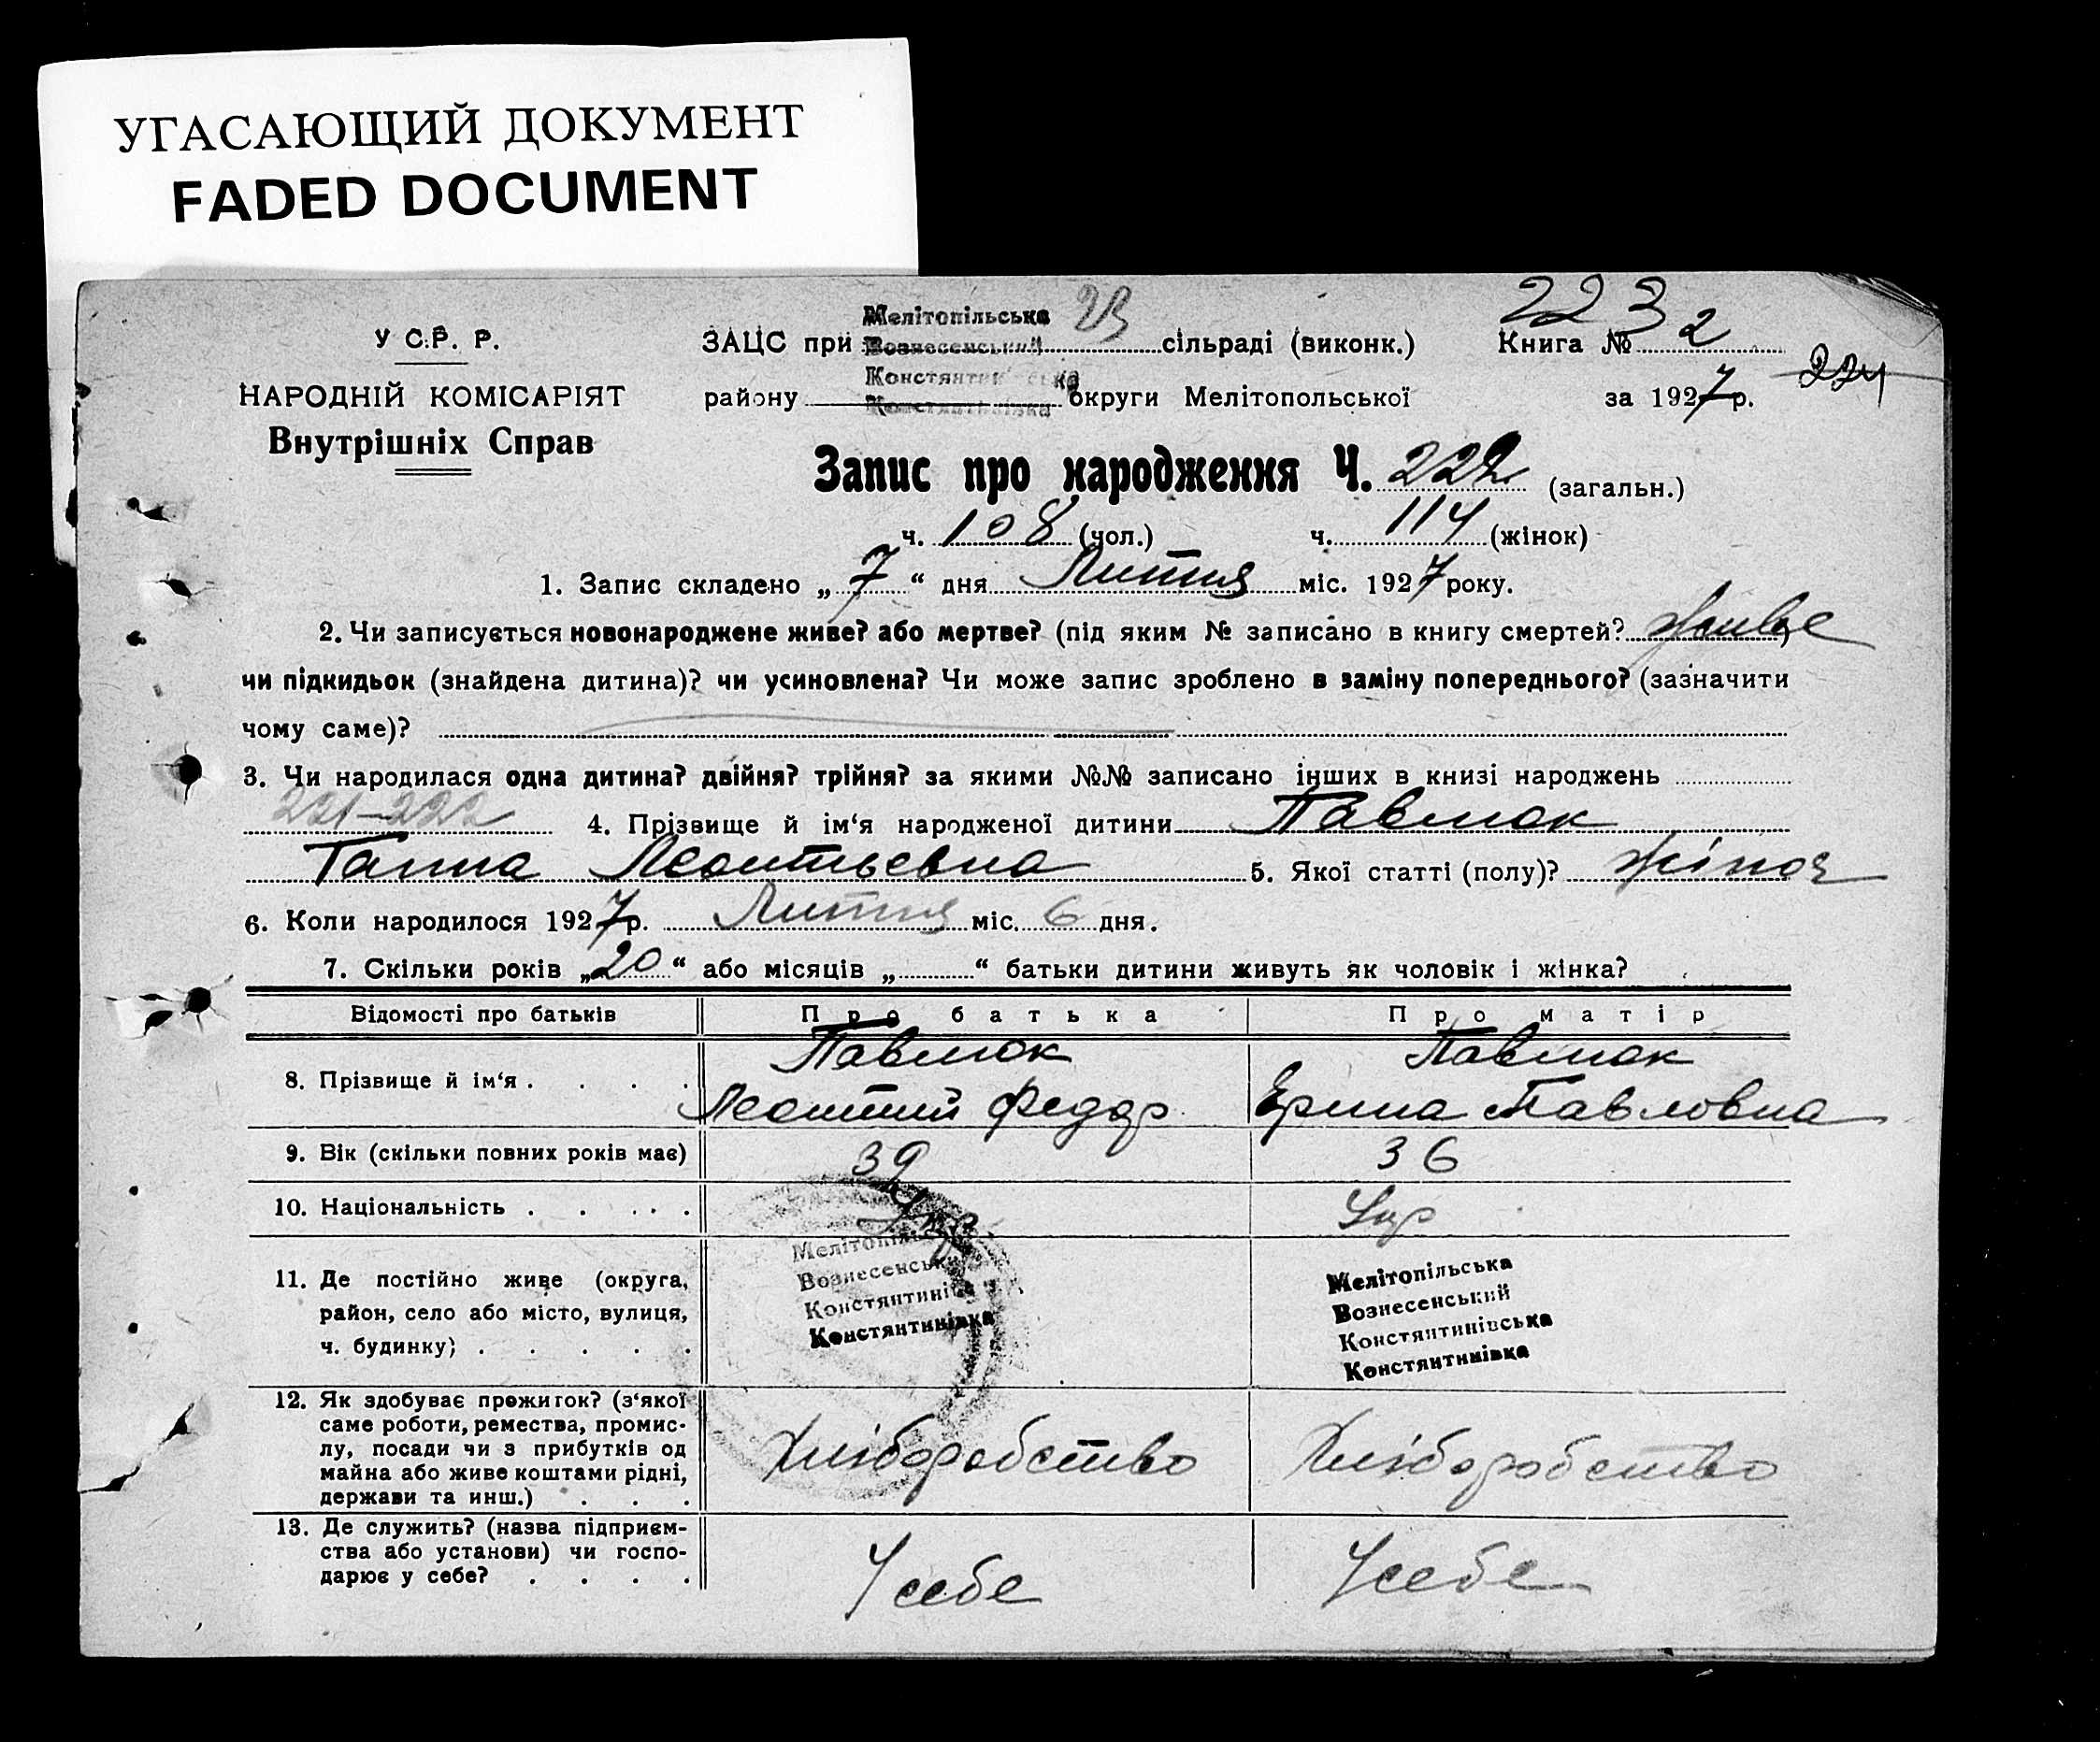 УГАСАЮЩИЙ ДОКУМЕНТ
FADED DOCUMENT
У С.Р. Р.
НАРОДНІЙ КОМІСАРІЯТ
Внутрішніх Справ
223
ЗАЦС при Мелітопільська Вознесенський сільраді (виконк.) Книга № 2
району Константинівка округи Мелітопольської за 1927 р. 224
Запис про народження Ч. 222 (загальн.)
ч. 108 (чол.) ч. 114 (жінок)
1. Запис складено „ 7 “ дня Липня міс. 1927 року.
2. Чи записується новонароджене живе? або мертве? (під яким № записано в книгу смертей? живе
чи підкидьок (знайдена дитина)? чи усиновлена? Чи може запис зроблено в заміну попереднього? (зазначити
чому саме)?
3. Чи народилася одна дитина? двійня? трійня? за якими №№ записано інших в книзі народжень
221-222 4. Прізвище й ім‘я народженої дитини Павлюк
Ганна Леонтьевна 5. Якої статті (полу)? жіноч
6. Коли народилося 1927 р. Липня міс. 6 дня.
7. Скільки років „ 20 “ або місяців „ “ батьки дитини живуть як чоловік і жінка?
Відомості про батьків Про батька Про матір
8. Прізвище й ім‘я . . . . Павлюк Леонтий Федор Павлюк Ерина Павловна
9. Вік (скільки повних років має) 39 36
10. Національність . . . . . Укр Укр
11. Де постійно живе (округа, Мелітопільська Мелітопільська
район, село або місто, вулиця, Вознесенський Вознесенський
ч. будинку) . . . . . Константинівська Константинівська
Константинівка Константинівка
12. Як здобуває прожиток? (з‘якої
саме роботи, ремества, промис-
лу, посади чи з прибутків од Хліборобство Хліборобство
майна або живе коштами рідні,
держави та инш.) . . .
13. Де служить? (назва підприєм-
ства або установи) чи госпо- У себе У себе
дарює у себе? . . . .